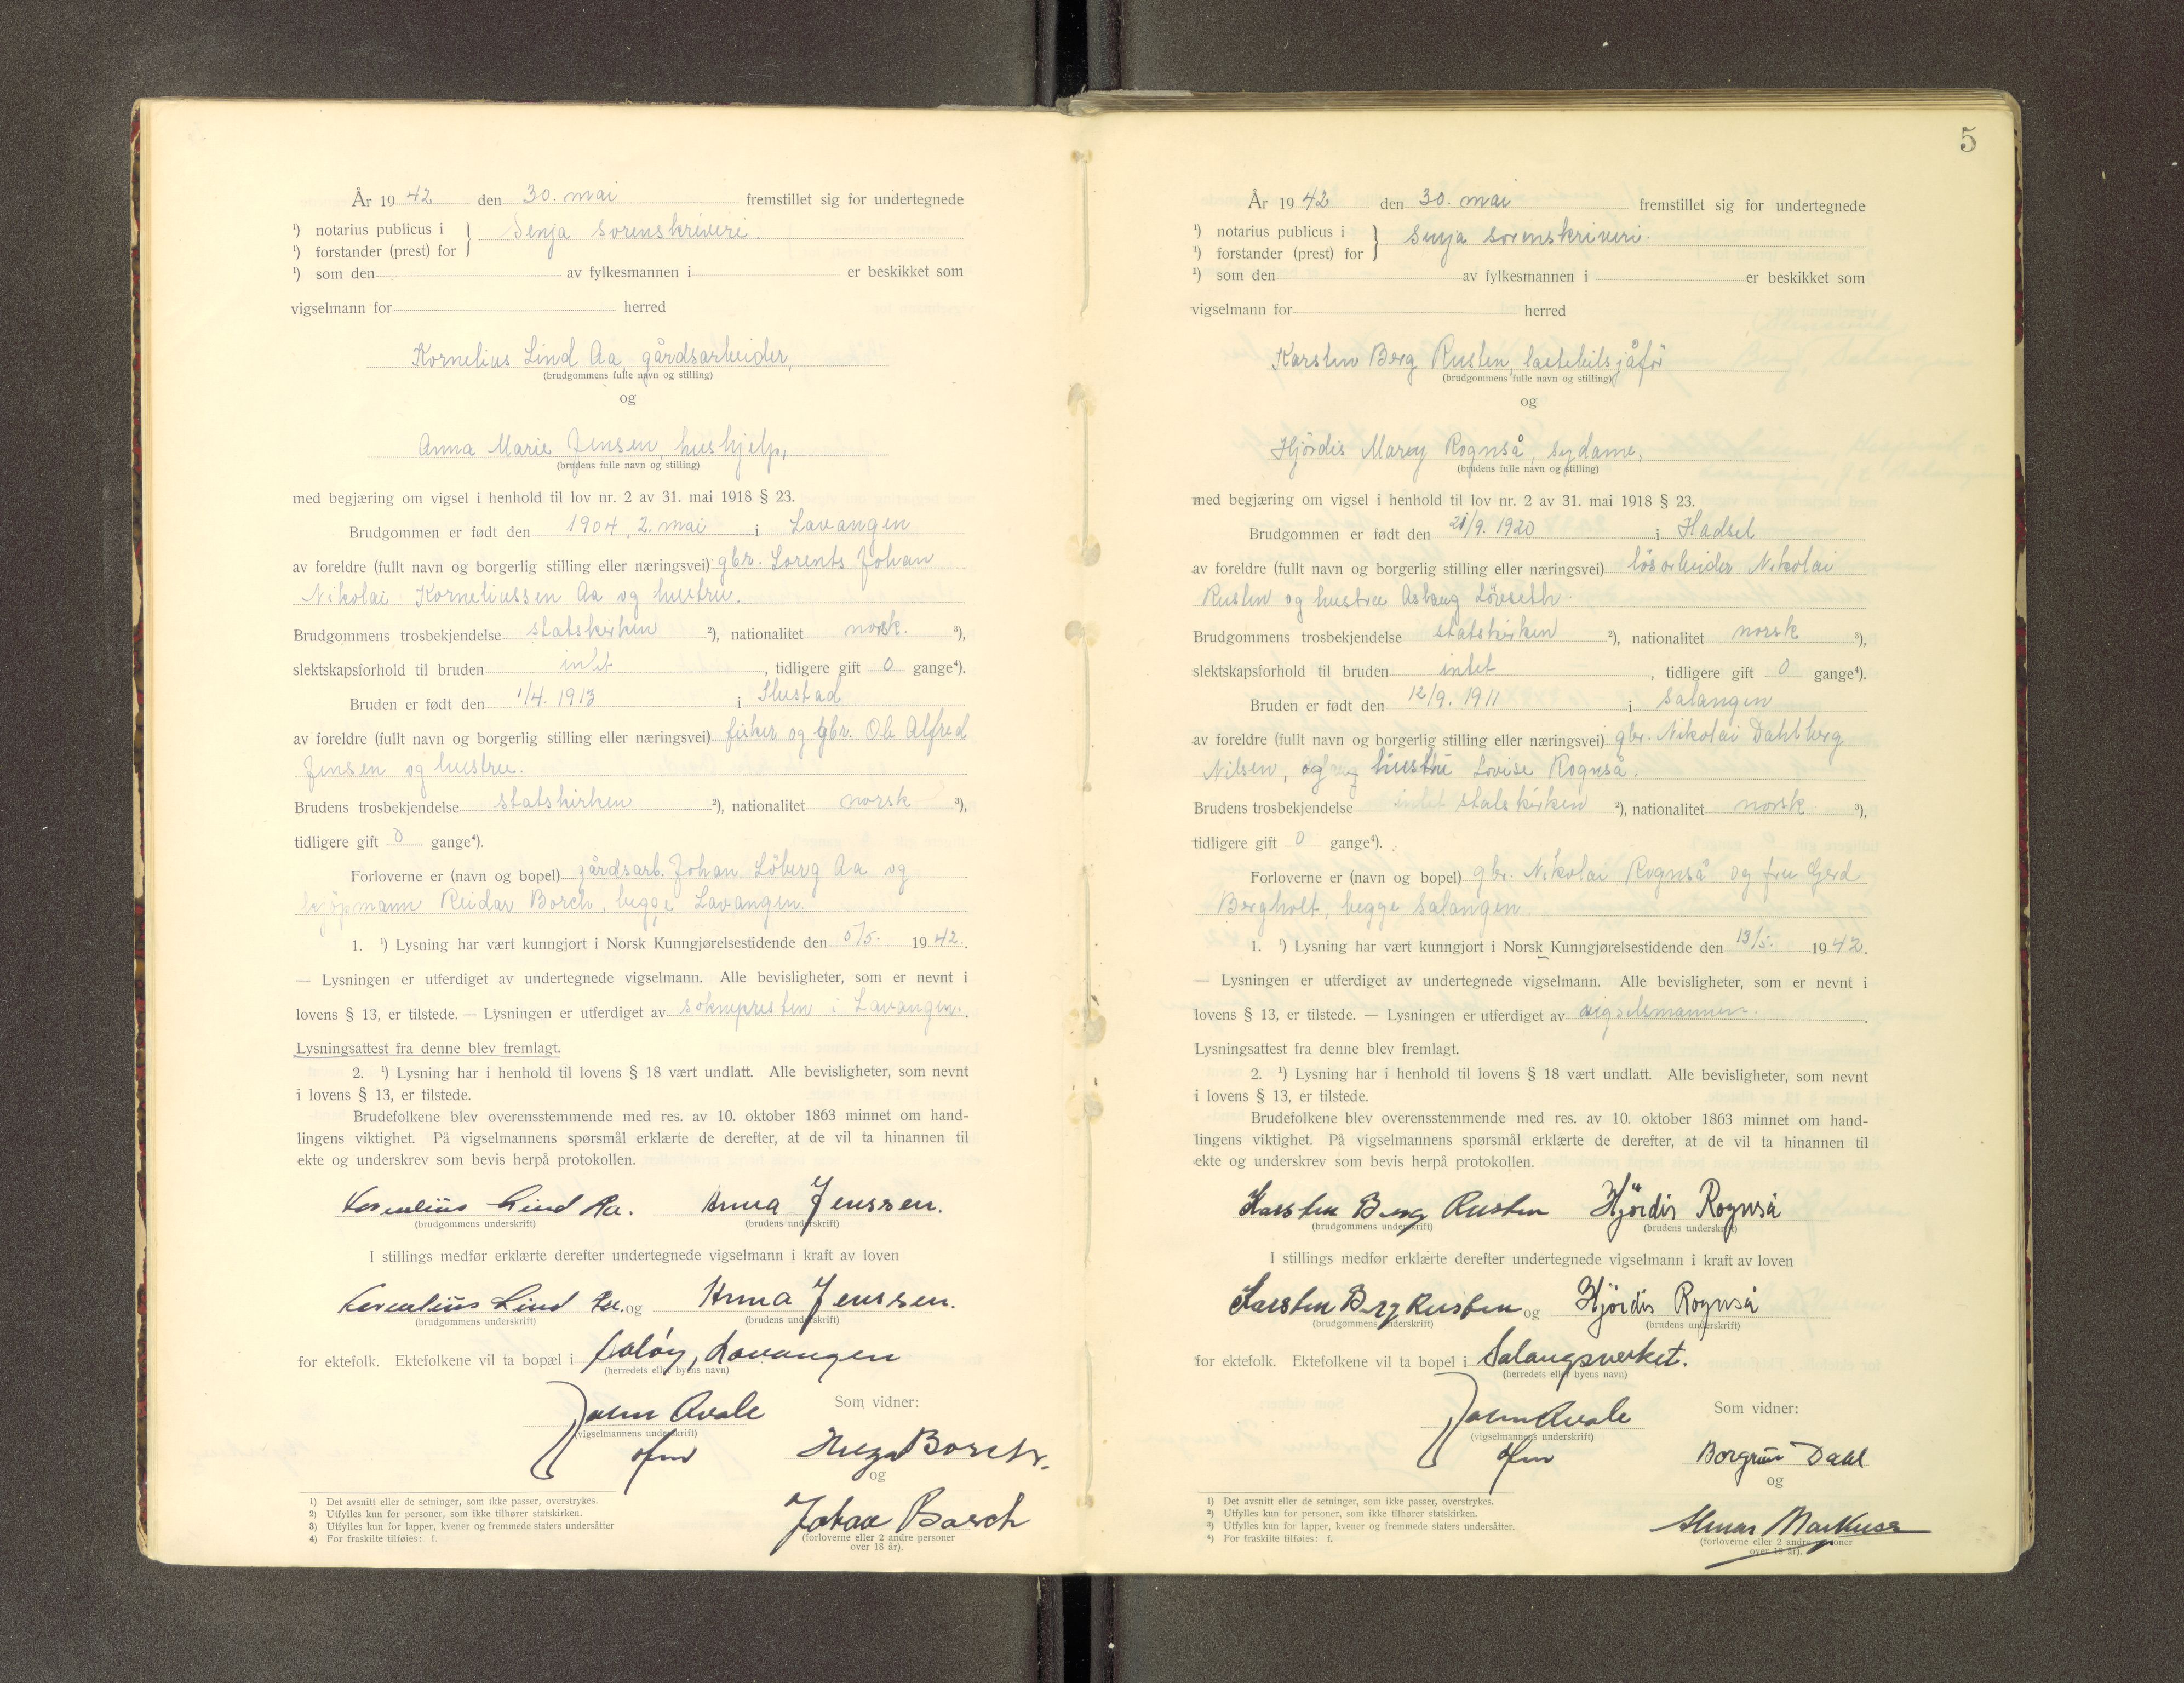 År 19 42 den 30. mai fremstillet sig for undertegnede
¹) notarius publicus i } Senja sorenskriveri.
¹) forstander (prest) for
¹) som den av fylkesmannen i er beskikket som
vigselmann for herred
Kornelius Lind Aa, gårdsarbeider,
(brudgommens fulle navn og stilling)
og
Anna Marie Jensen, hushjelp,
(brudens fulle navn og stilling)
med begjæring om vigsel i henhold til lov nr. 2 av 31. mai 1918 § 23.
Brudgommen er født den 1904, 2. mai i Lavangen
av foreldre (fullt navn og borgerlig stilling eller næringsvei) gbr. Lorents Johan
Nikolai Korneliussen Aa og hustru.
Brudgommens trosbekjendelse statskirken ²), nationalitet norsk. ³),
slektskapsforhold til bruden intet, tidligere gift 0 gange⁴).
Bruden er født den 1/4. 1913 i Hustad
av foreldre (fullt navn og borgerlig stilling eller næringsvei) fisker og gbr. Ole Alfred
Jensen og hustru.
Brudens trosbekjendelse statskirken ²), nationalitet norsk ³),
tidligere gift 0 gange⁴).
Forloverne er (navn og bopel) gårdsarb. Johan Löberg Aa og
kjöpmann Reidar Borch, begge Lavangen.
1. ¹) Lysning har vært kunngjort i Norsk Kunngjørelsestidende den 5/5. 1942.
— Lysningen er utferdiget av undertegnede vigselmann. Alle bevisligheter, som er nevnt i
lovens § 13, er tilstede. — Lysningen er utferdiget av soknepresten i Lavangen.
Lysningsattest fra denne blev fremlagt.
2. ¹) Lysning har i henhold til lovens § 18 vært undlatt. Alle bevisligheter, som nevnt
i lovens § 13, er tilstede.
Brudefolkene blev overensstemmende med res. av 10. oktober 1863 minnet om hand-
lingens viktighet. På vigselmannens spørsmål erklærte de derefter, at de vil ta hinannen til
ekte og underskrev som bevis herpå protokollen.
Kornelius Lind Aa. Anna Jenssen.
(brudgommens underskrift) (brudens underskrift)
I stillings medfør erklærte derefter undertegnede vigselmann i kraft av loven
Kornelius Lind Aa. og Anna Jenssen.
(brudgommens underskrift) (brudens underskrift)
for ektefolk. Ektefolkene vil ta bopæl i Lavangen
(herredets eller byens navn)
Som vidner:
(vigselmannens underskrift)
Borch.
og
Johan Borch
(forloverne eller 2 andre personer
over 18 år).
1) Det avsnitt eller de setninger, som ikke passer, overstrykes.
2) Utfylles kun for personer, som ikke tilhører statskirken.
3) Utfylles kun for lapper, kvener og fremmede staters undersåtter
4) For fraskilte tilføies: f.
5
År 19 42 den 30. mai fremstillet sig for undertegnede
¹) notarius publicus i } Senja sorenskriveri.
¹) forstander (prest) for
¹) som den av fylkesmannen i er beskikket som
vigselmann for herred
Karsten Berg Rusten, lastebilsjåför
(brudgommens fulle navn og stilling)
og
Hjördis Marey Rognså, sydame,
(brudens fulle navn og stilling)
med begjæring om vigsel i henhold til lov nr. 2 av 31. mai 1918 § 23.
Brudgommen er født den 21/9. 1920 i Hadsel
av foreldre (fullt navn og borgerlig stilling eller næringsvei) lösarbeider Nikolai
Rusten og hustru Aslaug Lövseth.
Brudgommens trosbekjendelse statskirken ²), nationalitet norsk ³),
slektskapsforhold til bruden intet, tidligere gift 0 gange⁴).
Bruden er født den 12/9. 1911 i Salangen
av foreldre (fullt navn og borgerlig stilling eller næringsvei) gbr. Nikolai Dahlberg
Nilsen, og hustru Lovise Rognså.
Brudens trosbekjendelse intet statskirken ²), nationalitet norsk ³),
tidligere gift 0 gange⁴).
Forloverne er (navn og bopel) gbr. Nikolai Rognså og fru Gerd
Bergholt, begge Salangen.
1. ¹) Lysning har vært kunngjort i Norsk Kunngjørelsestidende den 13/5. 1942.
— Lysningen er utferdiget av undertegnede vigselmann. Alle bevisligheter, som er nevnt i
lovens § 13, er tilstede. — Lysningen er utferdiget av vigselsmannen.
Lysningsattest fra denne blev fremlagt.
2. ¹) Lysning har i henhold til lovens § 18 vært undlatt. Alle bevisligheter, som nevnt
i lovens § 13, er tilstede.
Brudefolkene blev overensstemmende med res. av 10. oktober 1863 minnet om hand-
lingens viktighet. På vigselmannens spørsmål erklærte de derefter, at de vil ta hinannen til
ekte og underskrev som bevis herpå protokollen.
Karsten Berg Rusten Hjördis Rognså
(brudgommens underskrift) (brudens underskrift)
I stillings medfør erklærte derefter undertegnede vigselmann i kraft av loven
Karsten Berg Rusten og Hjördis Rognså
(brudgommens underskrift) (brudens underskrift)
for ektefolk. Ektefolkene vil ta bopel i Salangsverket.
(herredets eller byens navn)
Som vidner:
(vigselmannens underskrift)
Borgrun Dahl
og
(forloverne eller 2 andre personer
over 18 år).
¹) Det avsnitt eller de setninger, som ikke passer, overstrykes.
²) Utfylles kun for personer, som ikke tilhører statskirken.
³) Utfylles kun for lapper, kvener og fremmede staters undersåtter.
⁴) For fraskilte tilføies: f.